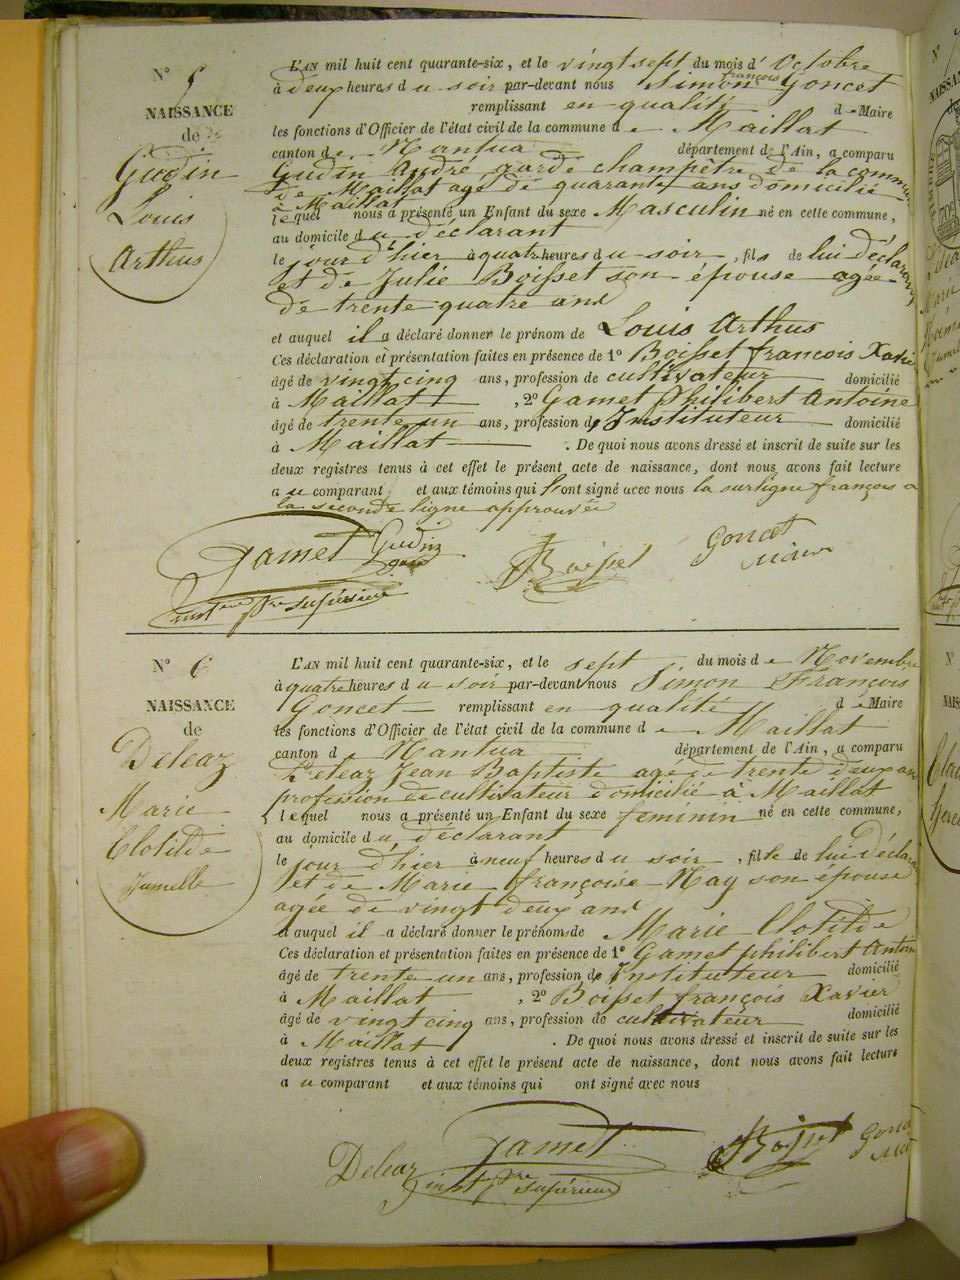 N° 5
NAISSANCE
de
Gudin
Louis
Arthus
L'AN mil huit cent quarante-six, et le vingt sept du mois d' Octobre
à deux heures du soir par-devant nous Simon françois Goncet
remplissant en qualité de Maire
les fonctions d'Officier de l'état civil de la commune de Maillat
canton de Nantua département de l'Ain, a comparu
Gudin André garde champêtre de la commune
de Maillat agé de quarante ans domicilié
à Maillat
lequel nous a présenté un Enfant du sexe Masculin né en cette commune,
au domicile du déclarant
le jour d'hier à quatre heures du soir, fils de lui déclarant
et de Julie Boisset son épouse agée
de trente quatre ans
et auquel il a déclaré donner le prénom de Louis Arthus
Ces déclaration et présentation faites en présence de 1° Boisset françois Xavier
âgé de vingt cinq ans, profession de cultivateur domicilié
à Maillat, 2° Gamet Philibert Antoine
âgé de trente un ans, profession de Instituteur domicilié
à Maillat. De quoi nous avons dressé et inscrit de suite sur les
deux registres tenus à cet effet le présent acte de naissance, dont nous avons fait lecture
au comparant et aux témoins qui l'ont signé avec nous la surligne françois a
la seconde ligne approuvée
Gamet Gudin Boisset Goncet
inst pre supérieur maire
N° 6
NAISSANCE
de
Deleaz
Marie
Clotilde
Jumelle
L'AN mil huit cent quarante-six, et le sept du mois de Novembre
à quatre heures du soir par-devant nous Simon François
Goncet remplissant en qualité de Maire
les fonctions d'Officier de l'état civil de la commune de Maillat
canton de Nantua département de l'Ain, a comparu
Deleaz Jean Baptiste agé de trente deux ans
profession de cultivateur domicilié à Maillat
lequel nous a présenté un Enfant du sexe feminin né en cette commune,
au domicile du déclarant
le jour d'hier à neuf heures du soir, fille de lui déclarant
et de Marie françoise Nay son épouse
agée de vingt deux ans
et auquel il a déclaré donner le prénom de Marie Clotilde
Ces déclaration et présentation faites en présence de 1° Gamet philibert Antoine
âgé de trente un ans, profession de Instituteur domicilié
à Maillat, 2° Boisset françois Xavier
âgé de vingt cinq ans, profession de cultivateur domicilié
à Maillat. De quoi nous avons dressé et inscrit de suite sur les
deux registres tenus à cet effet le présent acte de naissance, dont nous avons fait lecture
au comparant et aux témoins qui ont signé avec nous
Deleaz Gamet Boisset Goncet
inst pre supérieur